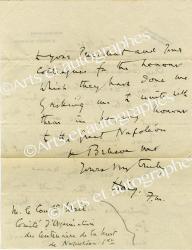 to your President and your
Colleagues for the honour
which they have done me
in asking me to unite with
them in doing honour
to the great Napoleon
Believe me
Yours very truly
Haig. F.M.
Comité d'Organisation
du Centenaire de la mort
de Napoléon 1er
© Arts et autographes